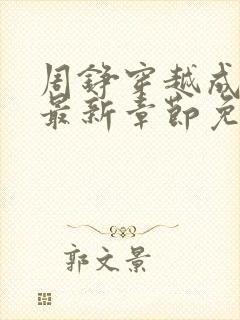 周铮穿越成
最新章节免
郭文景